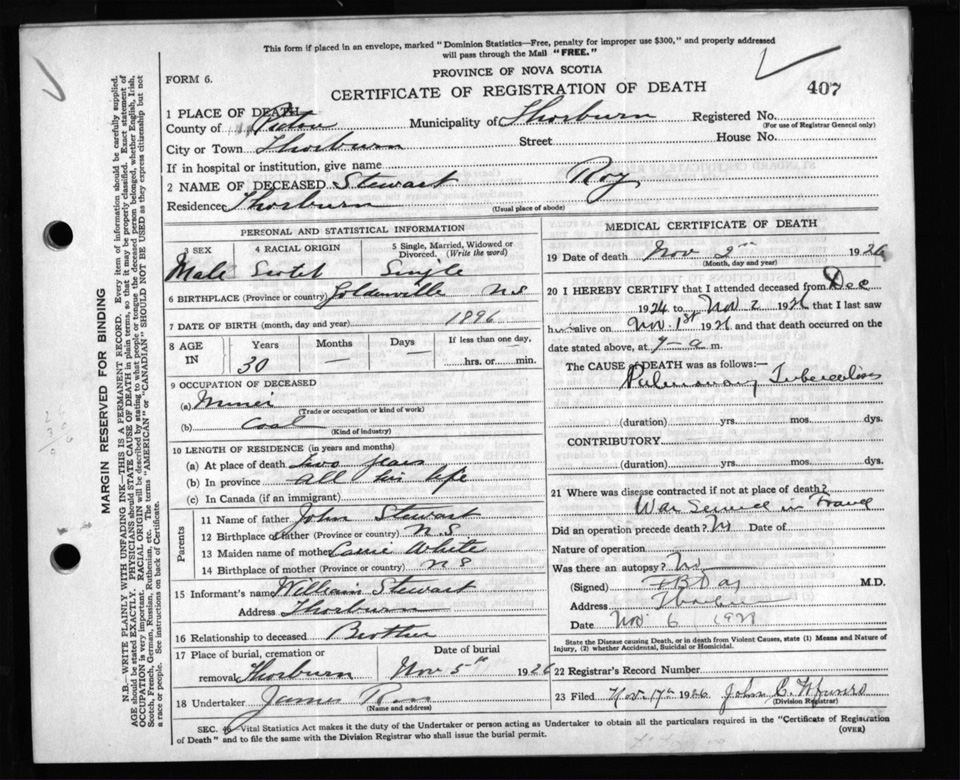 This form if placed in an envelope, marked "Dominion Statistics—Free, penalty for improper use $300," and properly addressed
will pass through the Mail "FREE."
PROVINCE OF NOVA SCOTIA
FORM 6.
CERTIFICATE OF REGISTRATION OF DEATH
407
1 PLACE OF DEATH
County of Pictou Municipality of Thorburn Registered No.
(For use of Registrar General only)
City or Town Thorburn Street House No.
If in hospital or institution, give name
2 NAME OF DECEASED Stewart Roy
Residence Thorburn
(Usual place of abode)
PERSONAL AND STATISTICAL INFORMATION
3 SEX 4 RACIAL ORIGIN 5 Single, Married, Widowed or
Divorced. (Write the word)
Male Scotch Single
6 BIRTHPLACE (Province or country) Goldenville N S
7 DATE OF BIRTH (month, day and year) 1896
8 AGE IN Years Months Days If less than one day,
30 — — hrs. or min.
9 OCCUPATION OF DECEASED
(a) Miner
(Trade or occupation or kind of work)
(b) Coal
(Kind of industry)
10 LENGTH OF RESIDENCE (in years and months)
(a) At place of death two years
(b) In province all his life
(c) In Canada (if an immigrant)
Parents
11 Name of father John Stewart
12 Birthplace of father (Province or country) N S
13 Maiden name of mother Carrie White
14 Birthplace of mother (Province or country) N S
15 Informant's name William Stewart
Address Thorburn
16 Relationship to deceased Brother
17 Place of burial, cremation or Date of burial
removal Thorburn Nov 5th 1926
18 Undertaker James
(Name and address)
MEDICAL CERTIFICATE OF DEATH
19 Date of death Nov 2nd 1926
(Month, day and year)
20 I HEREBY CERTIFY that I attended deceased from Dec
1924 to Nov 2 1926 that I last saw
h alive on Nov. 1st 1926 and that death occurred on the
date stated above, at 7 a m.
The CAUSE of DEATH was as follows:—
Pulmonary Tuberculosis
(duration) yrs. mos. dys.
CONTRIBUTORY
(duration) yrs. mos. dys.
21 Where was disease contracted if not at place of death?
War Service in France
Did an operation precede death? No Date of
Nature of operation
Was there an autopsy? No
(Signed) F B Day M.D.
Address Thorburn
Date Nov 6 192
State the Disease causing Death, or in death from Violent Causes, state (1) Means and Nature of
Injury, (2) whether Accidental, Suicidal or Homicidal.
22 Registrar's Record Number
23 Filed Nov. 17th 1926 John C.
(Division Registrar)
SEC. Vital Statistics Act makes it the duty of the Undertaker or person acting as Undertaker to obtain all the particulars required in the "Certificate of Registration
of Death" and to file the same with the Division Registrar who shall issue the burial permit. (OVER)
MARGIN RESERVED FOR BINDING
N.B.—WRITE PLAINLY WITH UNFADING INK—THIS IS A PERMANENT RECORD. Every item of information should be carefully supplied.
AGE should be stated EXACTLY. PHYSICIANS should STATE CAUSE OF DEATH in plain terms, so that it may be properly classified. Exact statement of
OCCUPATION is very important. RACIAL ORIGIN will be described by stating to what people or tongue the deceased person belonged, whether English, Irish,
Scotch, French, German, Russian, Ruthenian, etc. The terms "AMERICAN" or "CANADIAN" SHOULD NOT BE USED as they express citizenship but not
a race or people. See instructions on back of Certificate.